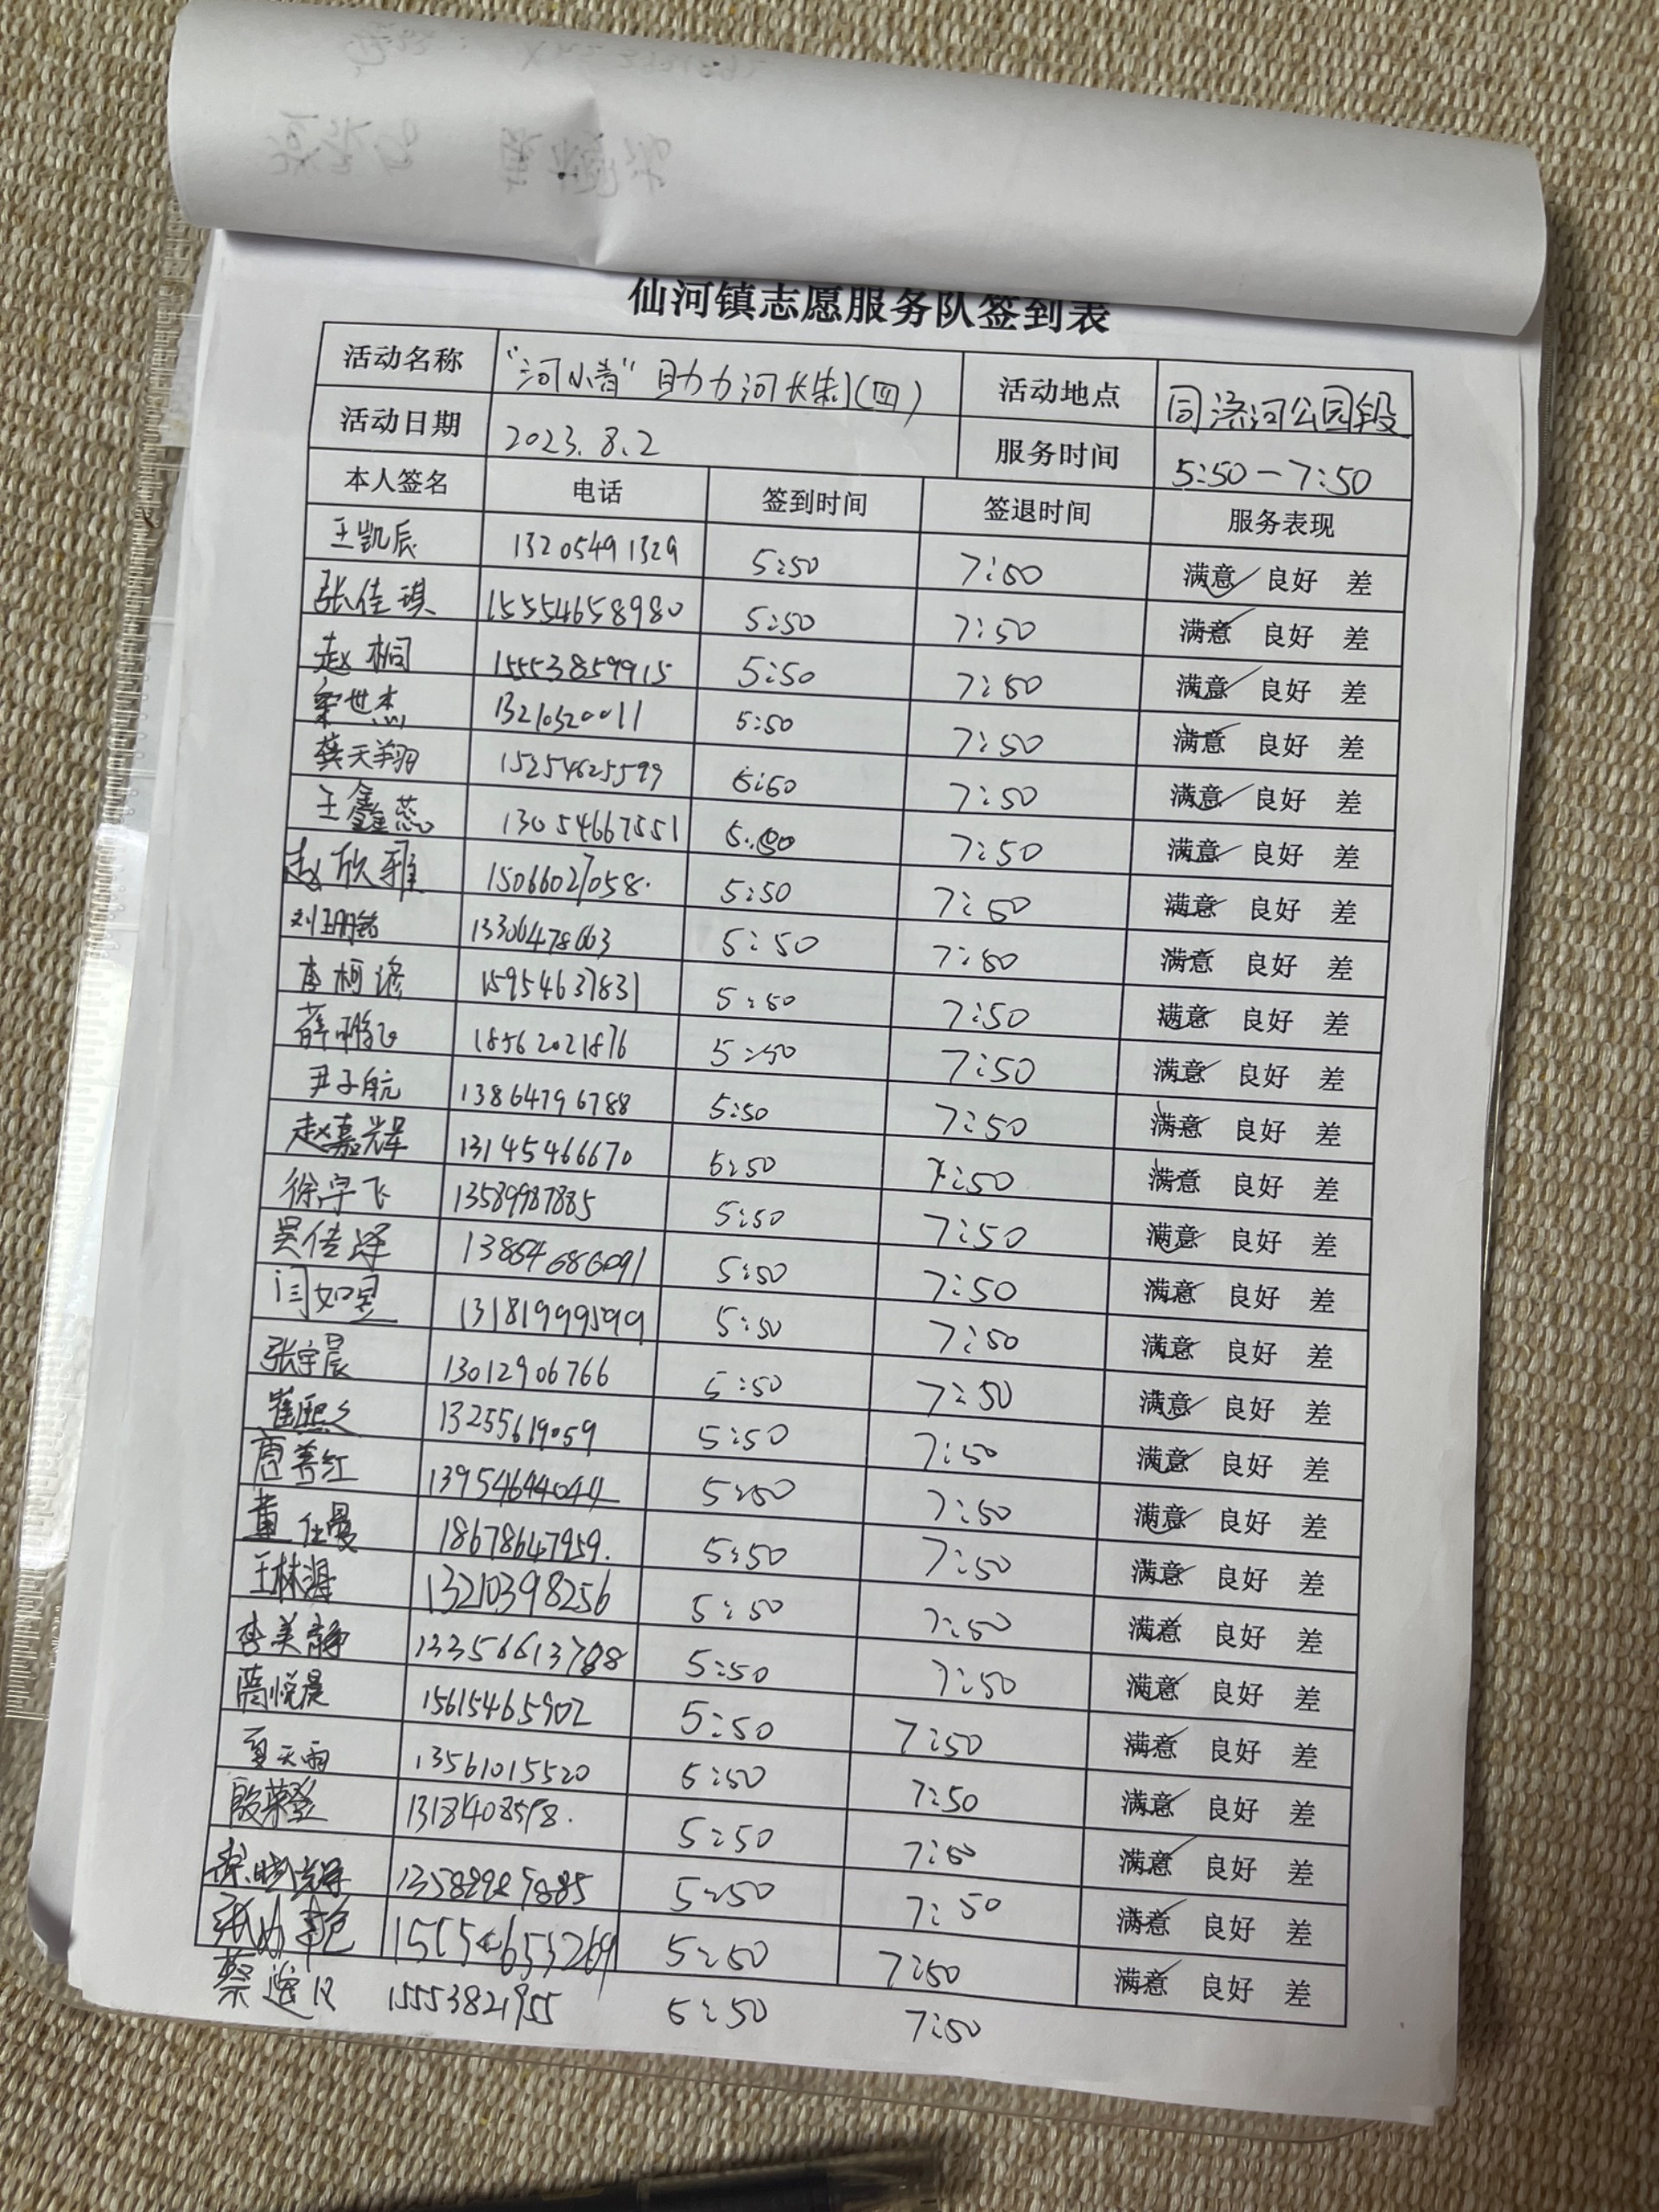 仙河镇志愿服务队签到表
活动名称 "河小青"助力河长制(四) 活动地点 同济河公园段
活动日期 2023.8.2 服务时间 5:50-7:50
本人签名 电话 签到时间 签退时间 服务表现
王凯辰 13205491329 5:50 7:50 满意 良好 差
张佳琪 15554658980 5:50 7:50 满意 良好 差
赵桐 15553859915 5:50 7:50 满意 良好 差
世杰 13210320011 5:50 7:50 满意 良好 差
龚天翔 15254625599 5:50 7:50 满意 良好 差
王鑫蕊 13054667551 5:50 7:50 满意 良好 差
赵欣雅 15066027058. 5:50 7:50 满意 良好 差
刘玥铭 13306478663 5:50 7:50 满意 良好 差
李柯谚 15954637831 5:50 7:50 满意 良好 差
薛鹏飞 18562021876 5:50 7:50 满意 良好 差
尹子航 13864796788 5:50 7:50 满意 良好 差
赵嘉辉 13145466670 5:50 7:50 满意 良好 差
徐宇飞 13589987885 5:50 7:50 满意 良好 差
吴佳泽 13854686091 5:50 7:50 满意 良好 差
闫如昱 13181999599 5:50 7:50 满意 良好 差
张宇晨 13012906766 5:50 7:50 满意 良好 差
崔熙 13255619059 5:50 7:50 满意 良好 差
唐善红 13954644044 5:50 7:50 满意 良好 差
董仕曼 18678647959. 5:50 7:50 满意 良好 差
王林 13210398256 5:50 7:50 满意 良好 差
李美静 13356613788 5:50 7:50 满意 良好 差
蔺悦晨 15615465902 5:50 7:50 满意 良好 差
夏天雨 13561015520 5:50 7:50 满意 良好 差
殷荣 1318408578. 5:50 7:50 满意 良好 差
徐晓辉 13589987885 5:50 7:50 满意 良好 差
张 5:50 7:50 满意 良好 差
蔡 15553821955 5:50 7:50